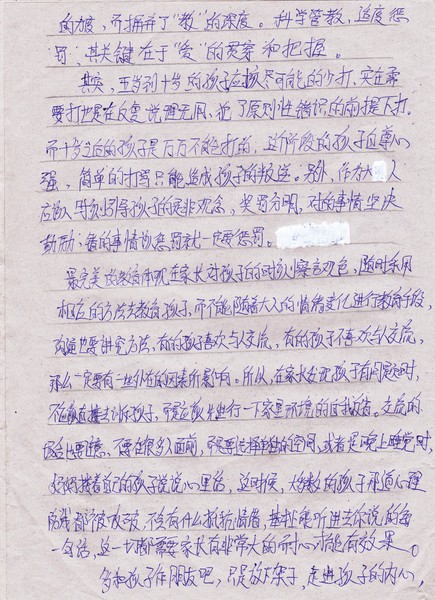 的力度，而摒弃了“教”的深度。科学管教，适度惩
罚，其关键在于“爱”的贯穿和把握。
其实，五岁到十岁的孩子应该尽可能的少打，实在需
要打也是在反复说理无用，犯了原则性错误的前提下打。
而十岁以后的孩子是万万不能打的，这个阶段的孩子自尊心
强，简单的打骂只能造成孩子的叛逆。另外，作为大人
应该从小引导孩子的是非观念，奖罚分明，对的事情坚决
鼓励；错的事情该惩罚就一定要惩罚。
最完美的教育体现在家长对孩子的时刻察言观色，随时采用
相应的方法去教育孩子，而不能随着大人的情绪变化进行教育手段，
沟通也要讲究方法，有的孩子喜欢与人交流，有的孩子不喜欢与人交流，
那么一定要有一些外在的因素所影响。所以，在家长发现孩子有问题时，
不能直接去训斥孩子，而是应该先进行一下家里环境的自我改造。交流的
场合上要注意，不要在很多人面前，而是要选择单独的空间，或者是晚上睡觉时，
好好搂着自己的孩子说说心里话，这时候，大多数的孩子那道心理
防线都被攻破，不会有什么抵抗情绪，基本能听进去你说的每
一句话，这一切都需要家长有非常大的耐心才能有效果。
多和孩子作朋友吧，只是放下架子，走进孩子的内心，